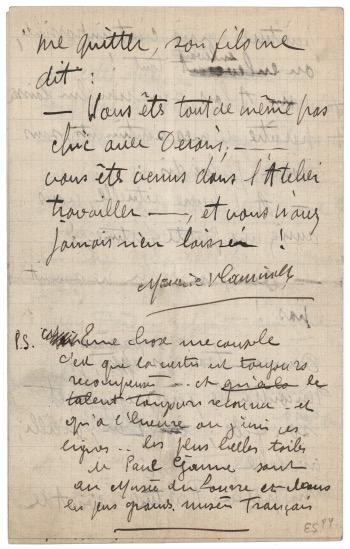 me quitter, son fils me
dit :
— Vous êts tout de même pas
chic avec Derain, —
vous êts venus dans l'Atelier
travailler —, et vous n'avez
jamais rien laissé !
Maurice Vlaminck
P.S. Une chose me
c'est que la vertu est toujours
récompensée .. et qu'a la le
talent toujours reconnu - et
qu'à l'heure où j'écris ces
lignes .. les plus belles toiles
de Paul Cézanne sont
au Musée du Louvre et dans
les plus grands musées Français